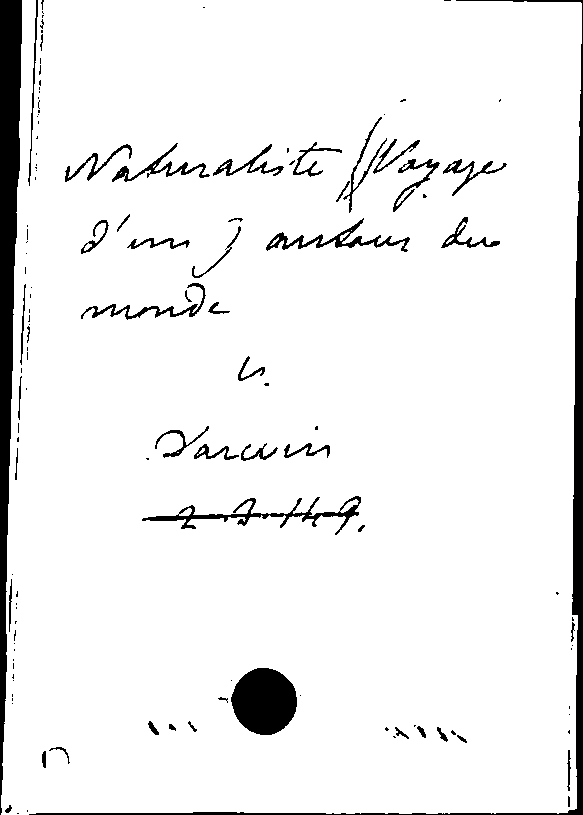 Naturaliste (Voyage
d'un) autour du
monde
v.
Darwin